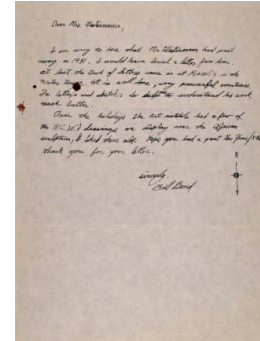 Dear Mrs. Westermann,
I am sorry to hear that Mr. Westermann had passed
away in 1981. I would have loved a letter from him.
at last the book of letters came in at Kroch's in the
Water tower. It is well done, very powerful
The letters and sketches to understand his work
much better.
Over the holidays The art institute had a few of
the H.C.W. drawings on display near the African
sculpture, I liked them all. Hope you had a great New Year/
thank you for your letter.
sincerely,
Bill Bond